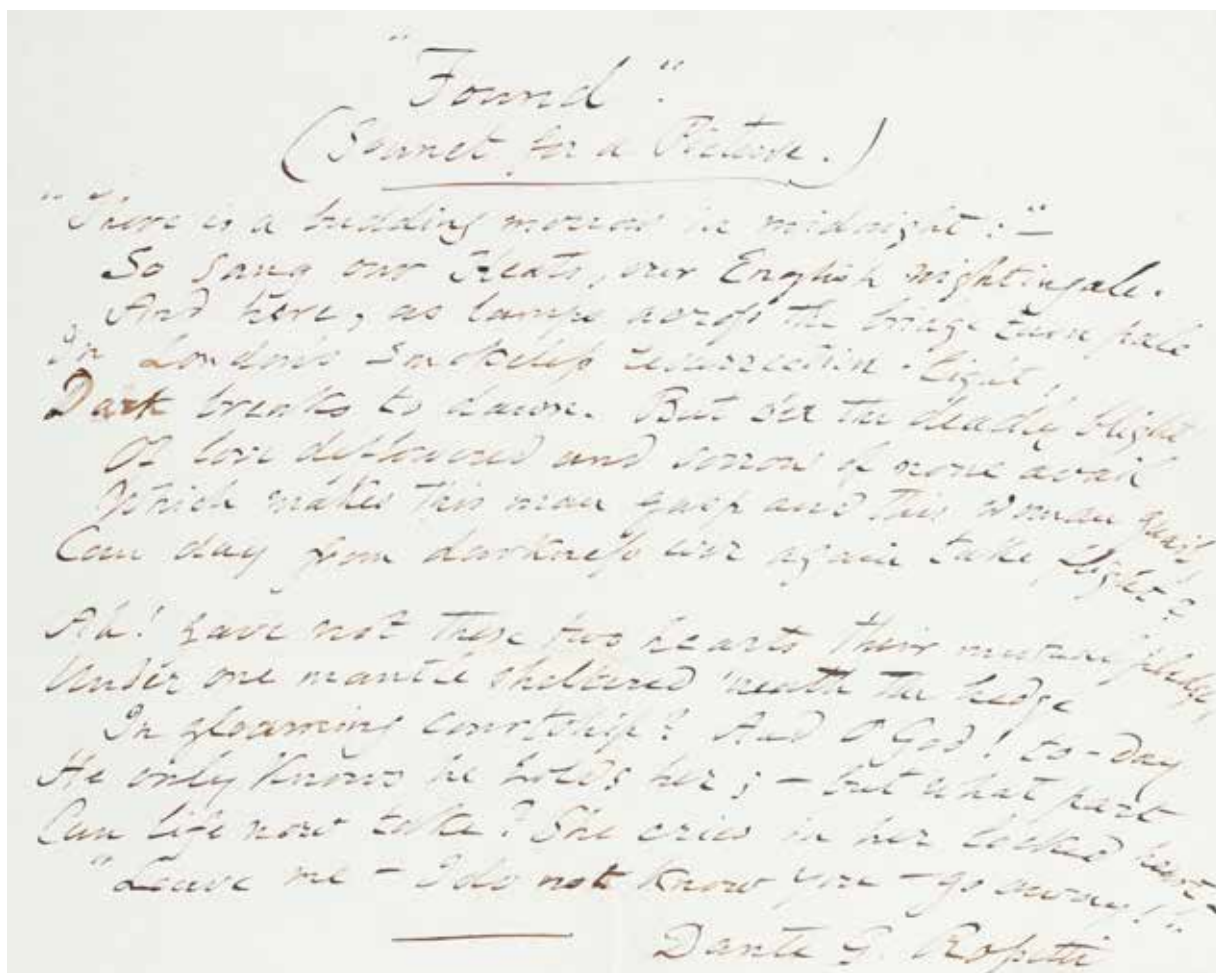 "Found".
(Sonnet for a Picture.)
"There is a budding morrow in midnight:"—
So sang our Keats, our English nightingale.
And here, as lamps across the bridge turn pale
In London's smokeless resurrection-light,
Dark breaks to dawn. But o'er the deadly blight
Of love deflowered and sorrow of none avail
Which makes this man gasp and this woman quail
Can day from darkness ever again take flight?
Ah! gave not these two hearts their mutual pledge,
Under one mantle sheltered 'neath the hedge
In gloaming courtship? And O God! to-day
He only knows he holds her;—but what part
Can life now take? She cries in her locked heart—
"Leave me – I do not know you – go away!"
Dante G. Rossetti